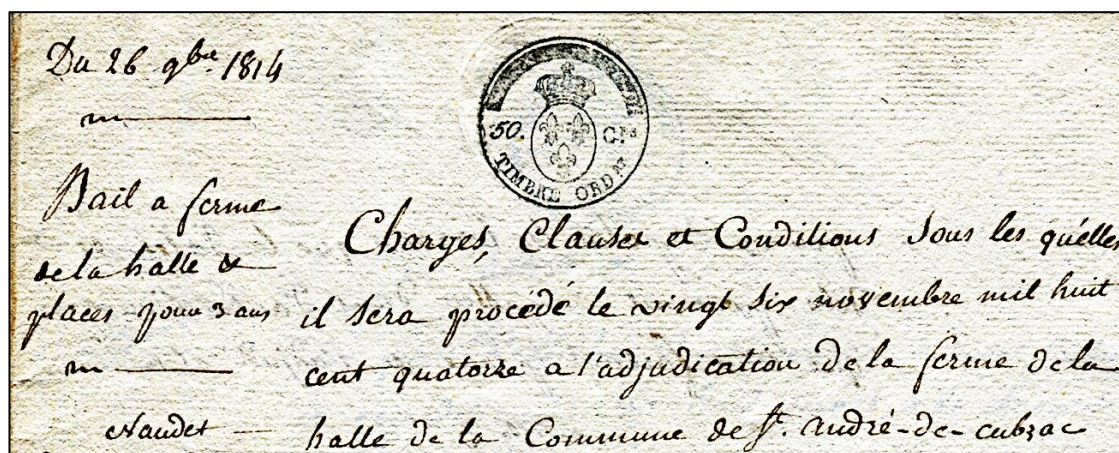 Du 26 9bre 1814
50. Ces
TIMBRE ORDRE
Bail a ferme
de la halle &
places pour 3 ans
Naudet
Charges, Clauses et Conditions sous les quélles
il sera procédé le vingt six novembre mil huit
cent quatorze a l'adjudication de la ferme de la
halle de la Commune de St. andré-de-cubzac